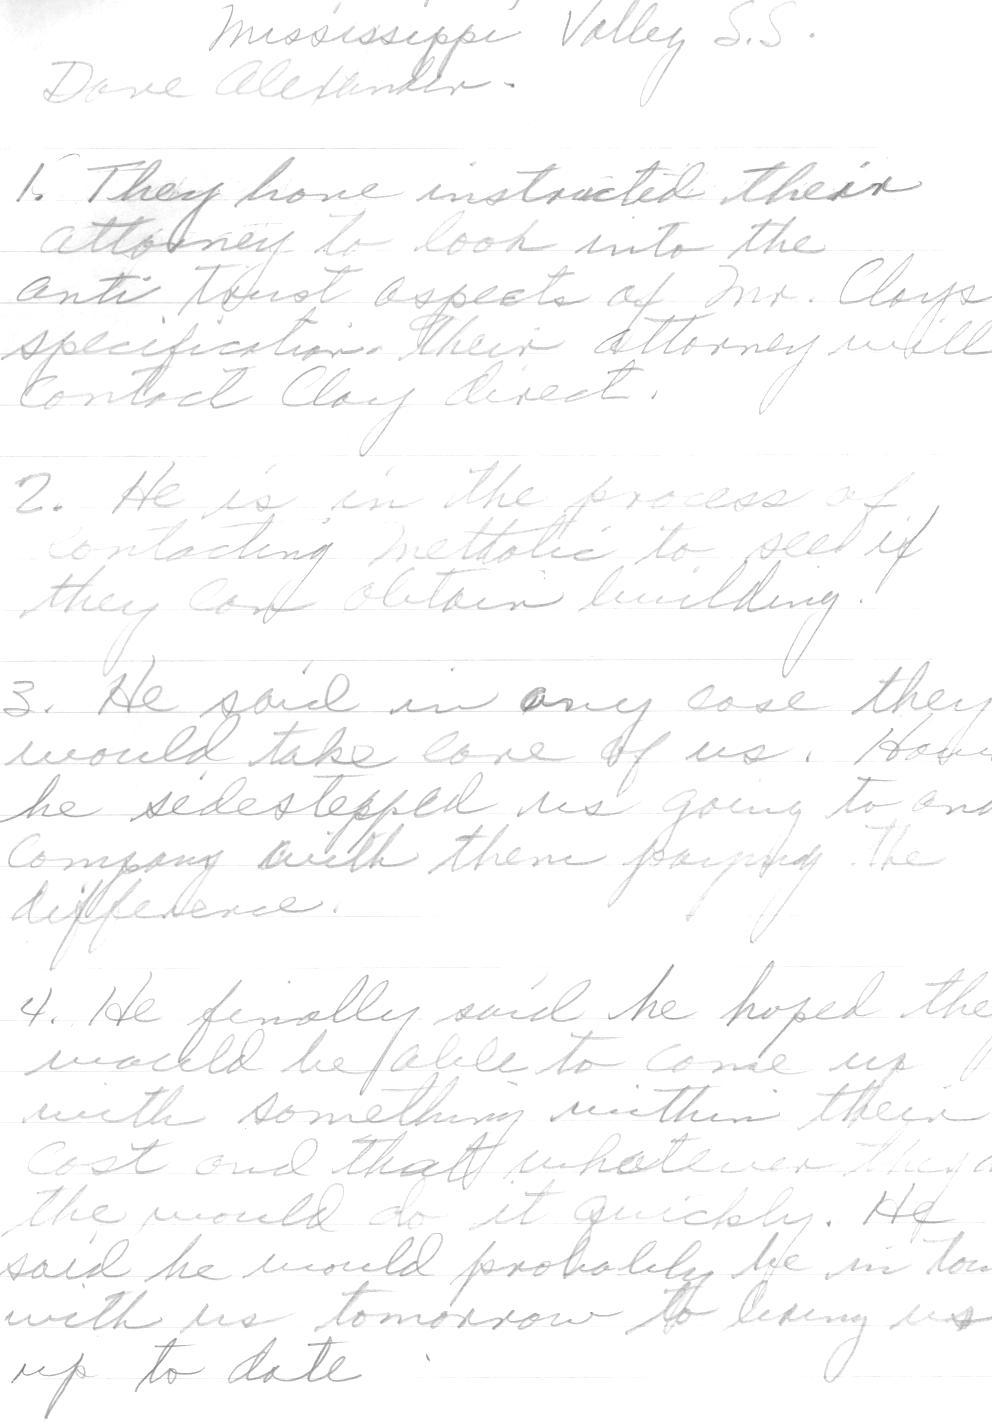 Mississippi Valley S.S.
Dave Alexander.
1. They have instructed their
attorney to look into the
anti trust aspects of Mr. Clays
specification. Their attorney will
contact Clay direct.
2. He is in the process of
contacting Metallic to see if
they can obtain building.
3. He said in any case they
would take care of us. How
he sidestepped us going to
company with them paying the
difference.
4. He finally said he hoped the
would be able to come up
with something within their
cost and that whatever they
the would do it quickly. He
said he would probably be in
with us tomorrow to bring us
up to date